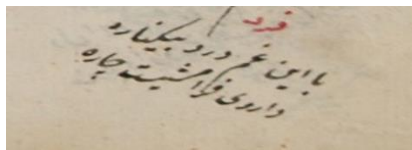 فرد
با این غم درد بیکناره
داروی فرامشیست چاره